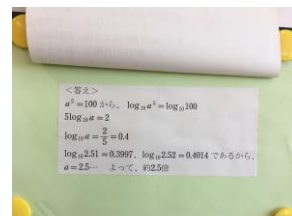 ＜答え＞
a⁵=100 から、log₁₀a⁵=log₁₀100
5log₁₀a=2
log₁₀a=2/5=0.4
log₁₀2.51=0.3997、log₁₀2.52=0.4014 であるから、
a=2.5… よって、約2.5倍